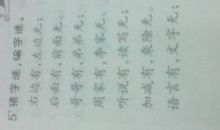 5、猜字谜,编字谜。
右边有,左边无;
后面有,前面无。
哥哥有,弟弟无;
周家有,李家无。
听说有,读写无;
加减有,乘除无。
语言有,文字无;